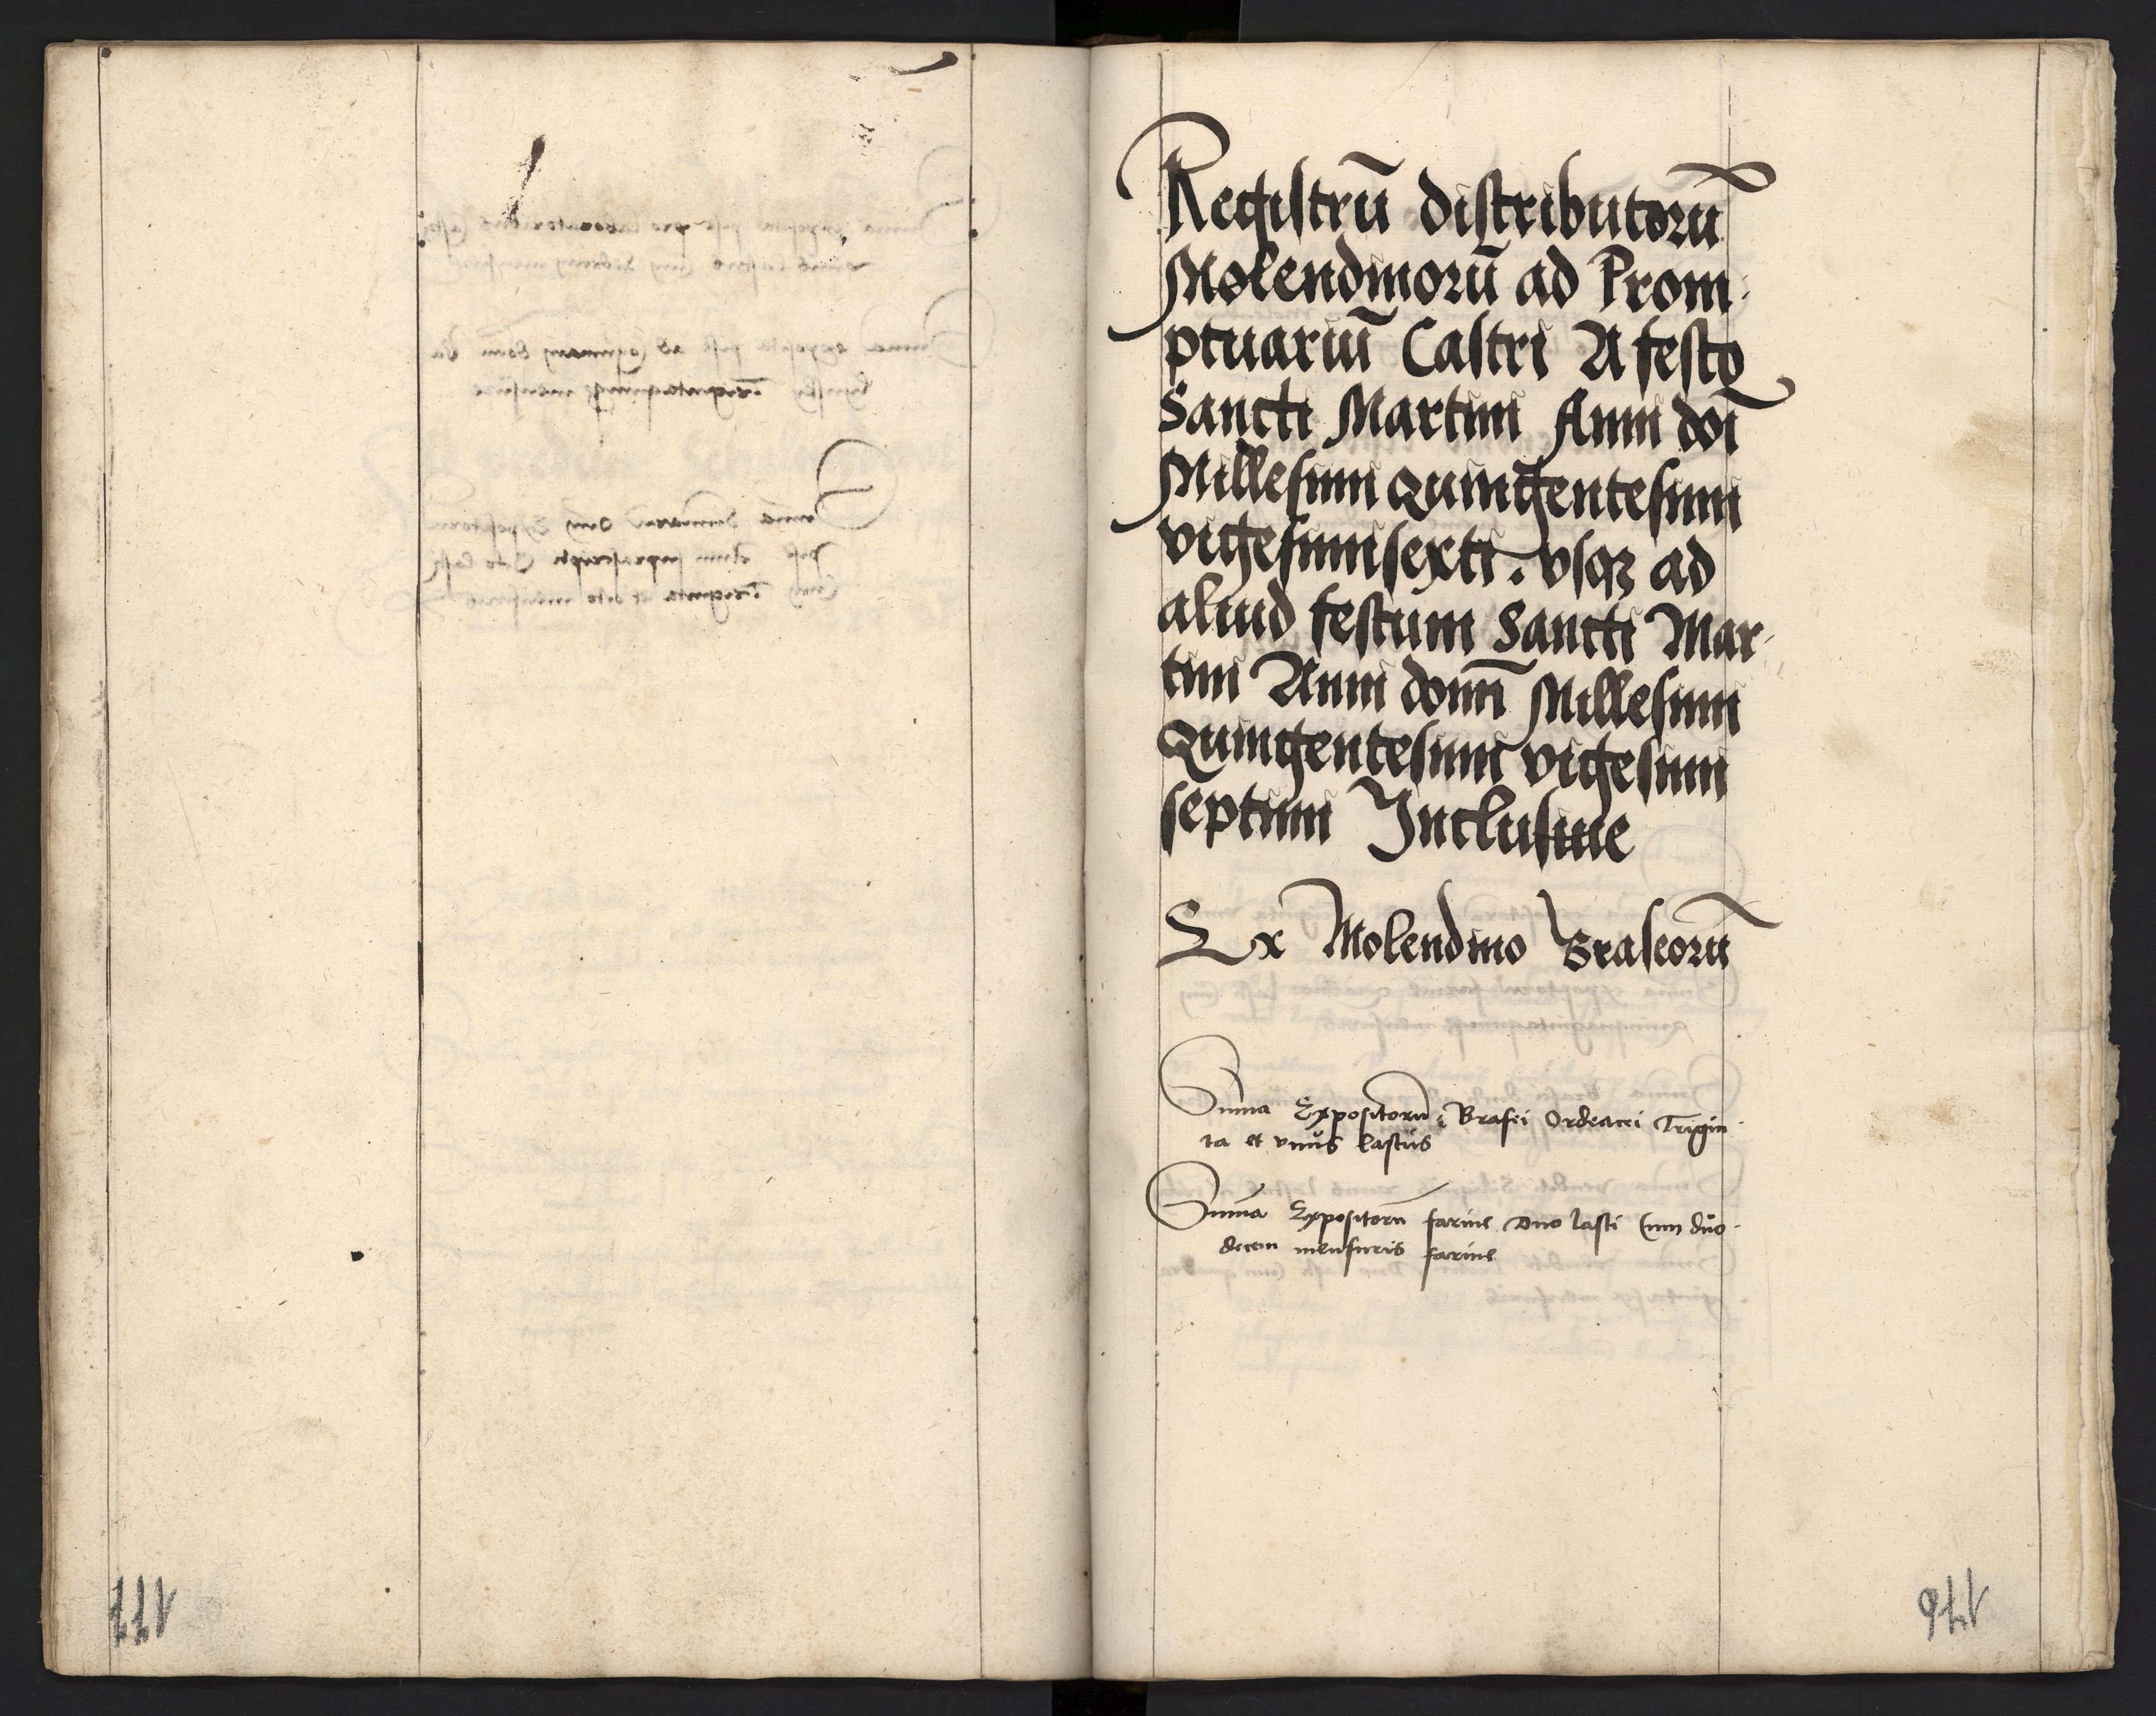 Registrū distributorū
Molendinorū ad Prom-
ptuariū Castri A festo
Sancti Martini Anni doī
Millesimi quingentesimi
vigesimisexti. vsqꝫ ad
aliud festum Sancti Mar-
tini Anni domī Millesimi
Quingentesimi vigesimi
septimi Inclusiue
Ex Molendino Braseorū
Suma Expositorū Brasei Ordeacei Trigin-
ta et vnus lastus
Suma Expositorū farine Duo lasti Cum duo-
decem mensuris farine
177
176